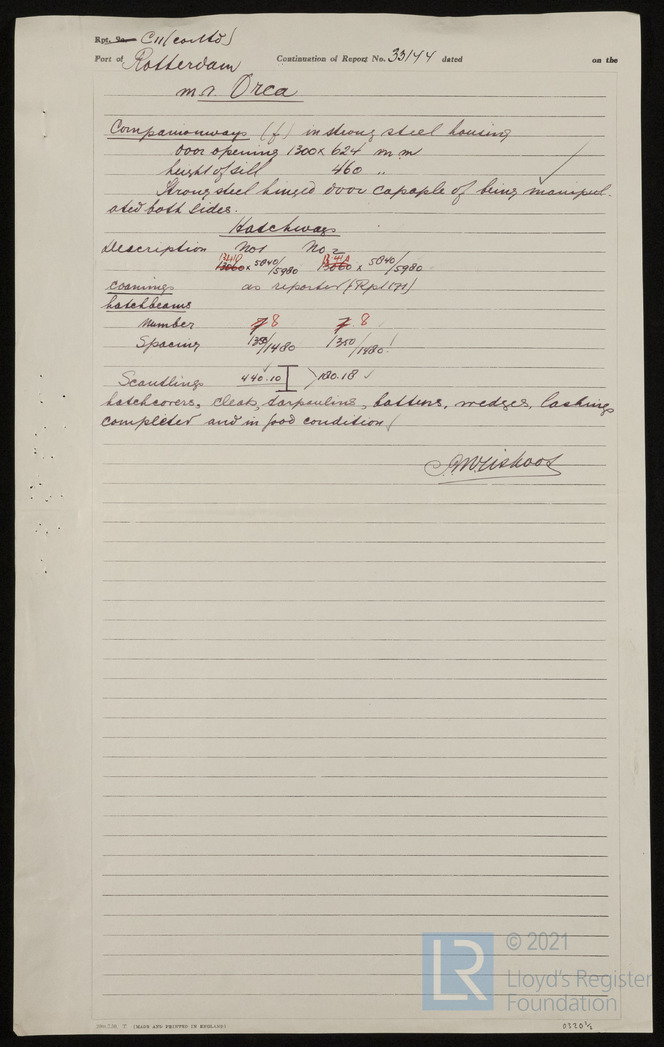 Rpt. 9a. C11 (contd)
Port of Rotterdam Continuation of Report No. 33144 dated on the
m.s. Orca
Companionways (f) in strong steel housing
door opening 1300 x 624 mm
height of sill 460 "
Strong steel hinged door capable of being manipul-
ated both sides.
Hatchways
Description No1 No2
13060 x 5840/5980 13060 x 5840/5980
coamings as reported (Rpt
hatchbeams
Number 7 8 7 8
Spacing 1350/1480 1350/1480
Scantlings 440.10 180.18
hatchcovers, cleats, tarpaulins, battens, wedges, lashings
completed and in good condition
© 2021
LR
Lloyd's Register
Foundation
(MADE AND PRINTED IN ENGLAND)